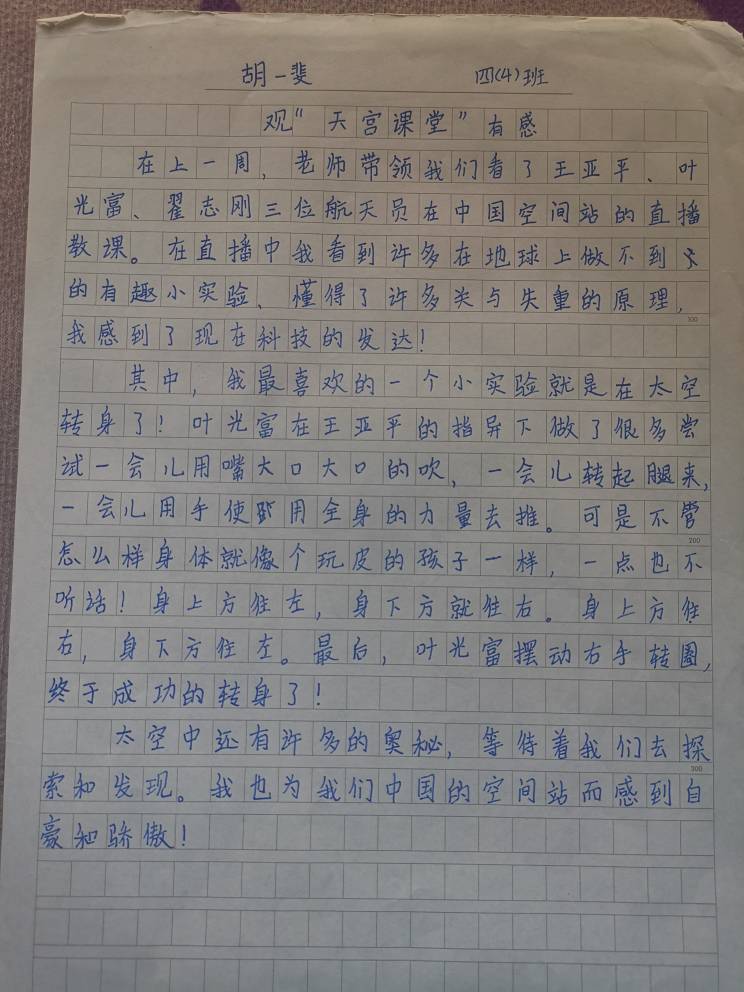 胡一斐 四(4)班
观“天宫课堂”有感
在上一周，老师带领我们看了王亚平、叶
光富、翟志刚三位航天员在中国空间站的直播
教课。在直播中我看到许多在地球上做不到
的有趣小实验、懂得了许多关与失重的原理，
100
我感到了现在科技的发达！
其中，我最喜欢的一个小实验就是在太空
转身了！叶光富在王亚平的指导下做了很多尝
试一会儿用嘴大口大口的吹，一会儿转起腿来，
一会儿用手使用全身的力量去推。可是不管
200
怎么样身体就像个玩皮的孩子一样，一点也不
听话！身上方往左，身下方就往右。身上方往
右，身下方往左。最后，叶光富摆动右手转圈，
终于成功的转身了！
太空中还有许多的奥秘，等待着我们去探
300
索和发现。我也为我们中国的空间站而感到自
豪和骄傲！